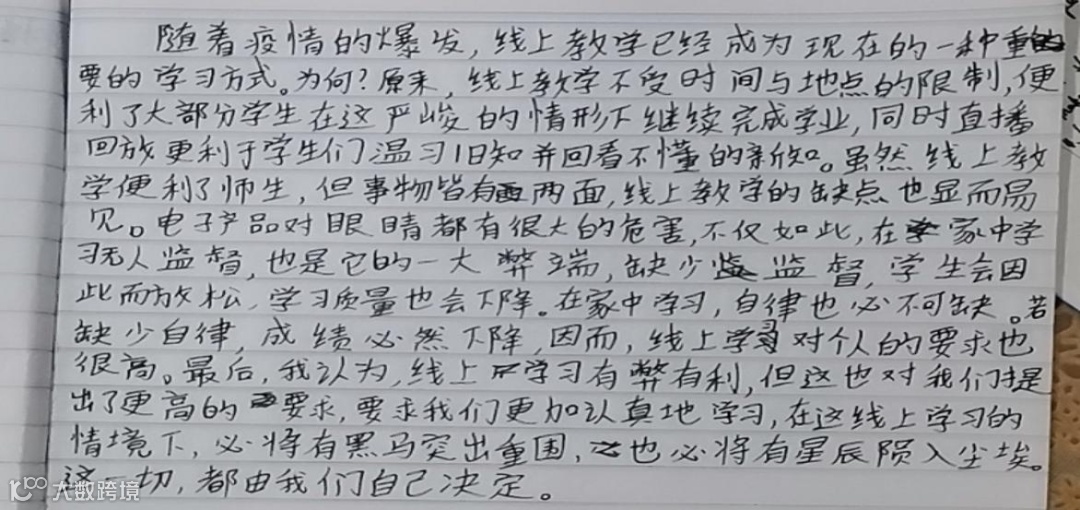 随着疫情的爆发,线上教学已经成为现在的一种重
要的学习方式。为何?原来,线上教学不受时间与地点的限制,便
利了大部分学生在这严峻的情形下继续完成学业,同时直播
回放更利于学生们温习旧知并回看不懂的新知。虽然线上教
学便利了师生,但事物皆有两面,线上教学的缺点也显而易
见。电子产品对眼睛都有很大的危害,不仅如此,在家中学
习无人监督,也是它的一大弊端,缺少监督,学生会因
此而放松,学习质量也会下降。在家中学习,自律也必不可缺。若
缺少自律,成绩必然下降,因而,线上学习对个人的要求也
很高。最后,我认为,线上学习有弊有利,但这也对我们提
出了更高的要求,要求我们更加认真地学习,在这线上学习的
情境下,必将有黑马突出重围,也必将有星辰陨入尘埃。
这一切,都由我们自己决定。
大数跨境